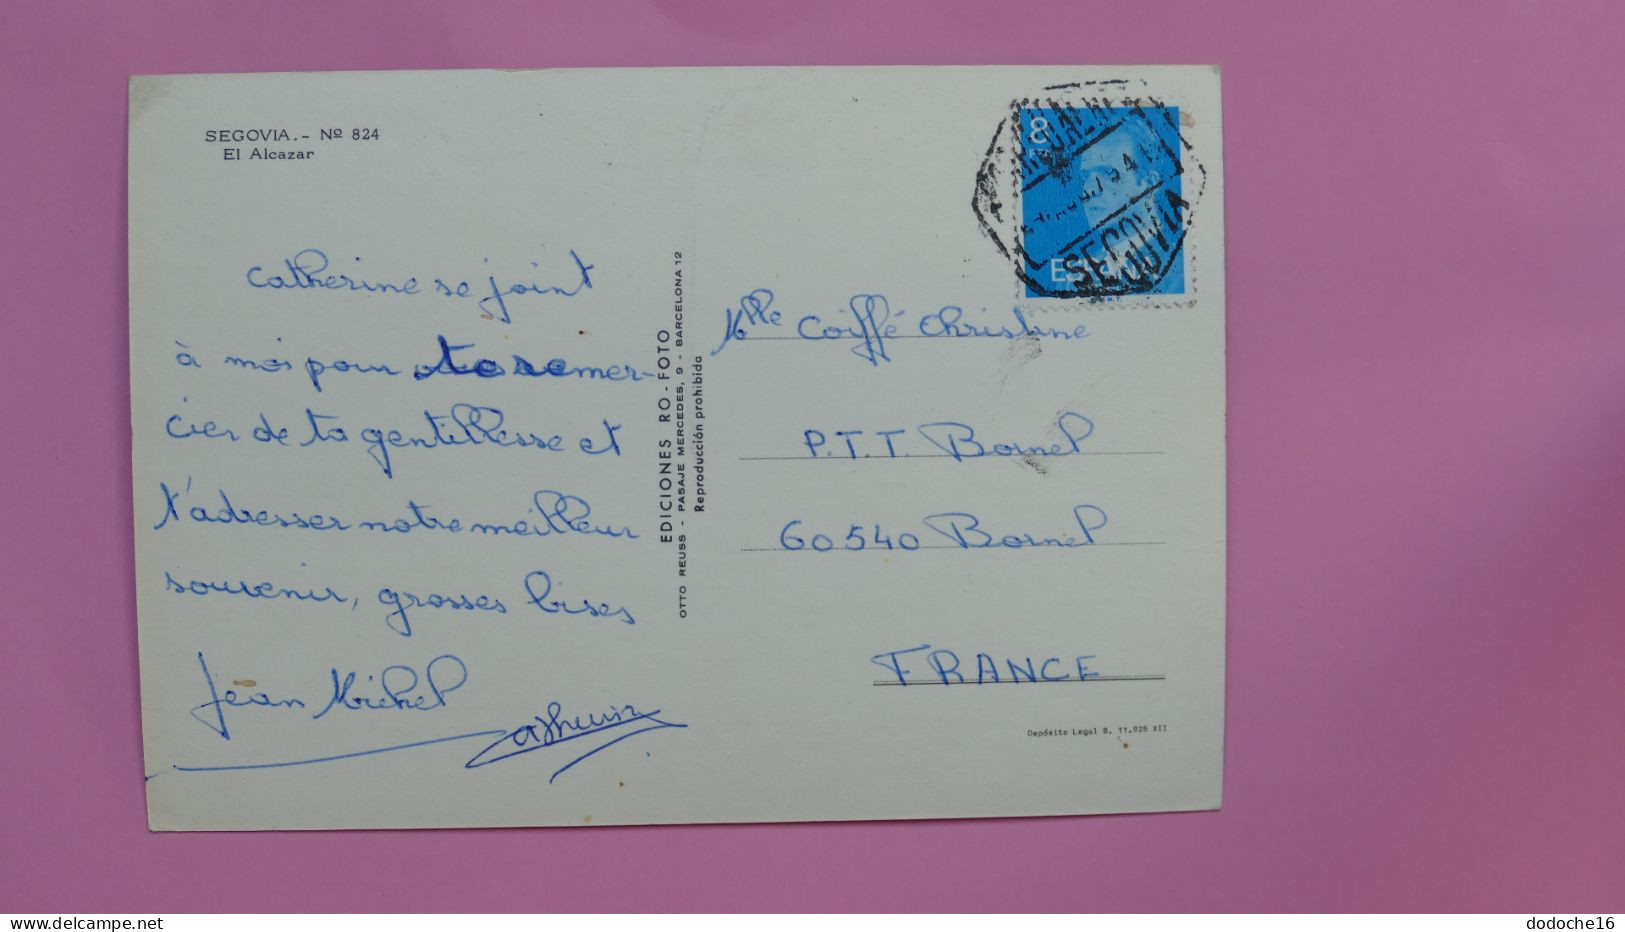 SEGOVIA.- Nº 824
El Alcazar
Catherine se joint
à moi pour te remer-
cier de ta gentillesse et
t'adresser notre meilleur
souvenir, grosses bises
Jean Michel
Catherine
EDICIONES RO-FOTO
OTTO REUSS - PASAJE MERCEDES, 9 - BARCELONA 12
Reproducción prohibida
8
PTA
ESPAÑA
SEGOVIA
Mlle Coiffé Christine
P.T.T. Bornel
60540 Bornel
FRANCE
Depósito Legal B. 11.925 XII
www.delcampe.net
dodoche16